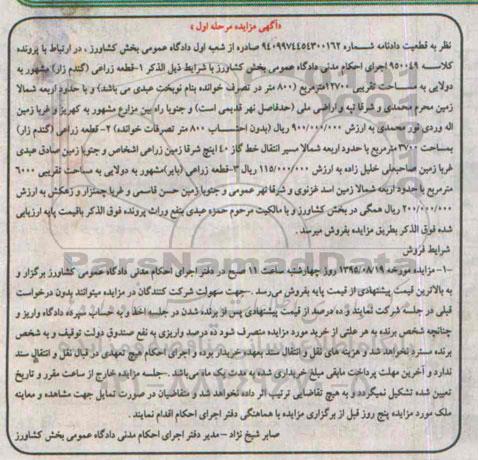 داگهی مزایده مرحله اول
نظر به قطعیت دادنامه شماره ۹۴۰۹۹۷۴۴۵۴۳۰۰۱۶۲ صادره از شعب اول دادگاه عمومی بخش کشاورز ، در ارتباط با پرونده
کلاسه ۹۵۰۰۴۹ اجرای احکام مدنی دادگاه عمومی بخش کشاورز با شرایط ذیل الذکر ۱-قطعه زراعی (گندم زار) مشهور به
دولابی به مساحت تقریبی ۱۲۷۰۰مترمربع (۸۰۰ متر در تصرف خوانده بنام نوبخت عبدی می باشد) و با حدود اربعه شمالا
زمین محرم محمدی و شرقا تپه و اراضی ملی (حدفاصل نهر قدیمی است) و جنوبا راه بین مزارع مشهور به کهریز و غربا زمین
اله وردی نور محمدی به ارزش ۹۰۰/۰۰۰/۰۰۰ ریال (بدون احتساب ۸۰۰ متر تصرفات خوانده) ۲- قطعه زراعی (گندم زار)
بمساحت ۳۷۰۰مترمربع با حدود اربعه شمالا مسیر انتقال خط گاز ۴۰ اینچ شرقا زمین زراعی اشخاص و جنوبا زمین صادق عبدی
غربا زمین صاحبعلی خلیل زاده به ارزش ۱۱۵/۰۰۰/۰۰۰ ریال ۳-قطعه زراعی (بایر)مشهور به دولابی به مساحت تقریبی ۶۰۰۰
مترمربع با حدود اربعه شمالا زمین اسد غزنوی و شرقا نهر عمومی و جنوبا زمین حسن قاسمی و غربا چمنزار و زهکش به ارزش
۲۰۰/۰۰۰/۰۰۰ ریال همگی در بخش کشاورز و با مالکیت مرحوم حمزه عبدی بنفع وراث پرونده فوق الذکر باقیمت پایه ارزیابی
شده فوق الذکر بطریق مزایده بفروش میرسد .
شرایط فروش
۱- مزایده مورخه ۱۳۹۵/۰۸/۱۹ روز چهارشنبه ساعت ۱۱ صبح در دفتر اجرای احکام مدنی دادگاه عمومی کشاورز برگزار و
به بالاترین قیمت پیشنهادی از قیمت پایه بفروش می‌رسد .-جهت سهولت شرکت کنندگان در مزایده میتوانند بدون درخواست
قبلی در جلسه شرکت نمایند و ده درصد از قیمت پیشنهادی پس از برنده شدن در جلسه اخذ و به حساب سپرده دادگاه واریز و
چنانچه شخص برنده به هر علتی از خرید مورد مزایده منصرف شود ده درصد واریزی به نفع صندوق دولت توقیف و به شخص
برنده مسترد نخواهد شد و هزینه های نقل و انتقال سند بعهده خریدار بوده و اجرای احکام هیچ تعهدی در قبال نقل و انتقال سند
ندارد و آخرین مهلت پرداخت مابقی مبلغ خریداری شده به مدت یک ماه می‌باشد .-جلسه مزایده خارج از ساعت مقرر و تاریخ
تعیین شده تشکیل نمیگردد و به هیچ تقاضایی ترتیب اثر داده نخواهد شد و متقاضیان در صورت تمایل جهت مشاهده و معاینه
ملک مورد مزایده پنج روز قبل از برگزاری مزایده با هماهنگی دفتر اجرای احکام اقدام نمایند .
صابر شیخ نژاد - مدیر دفتر اجرای احکام مدنی دادگاه عمومی بخش کشاورز
ParsNamadData